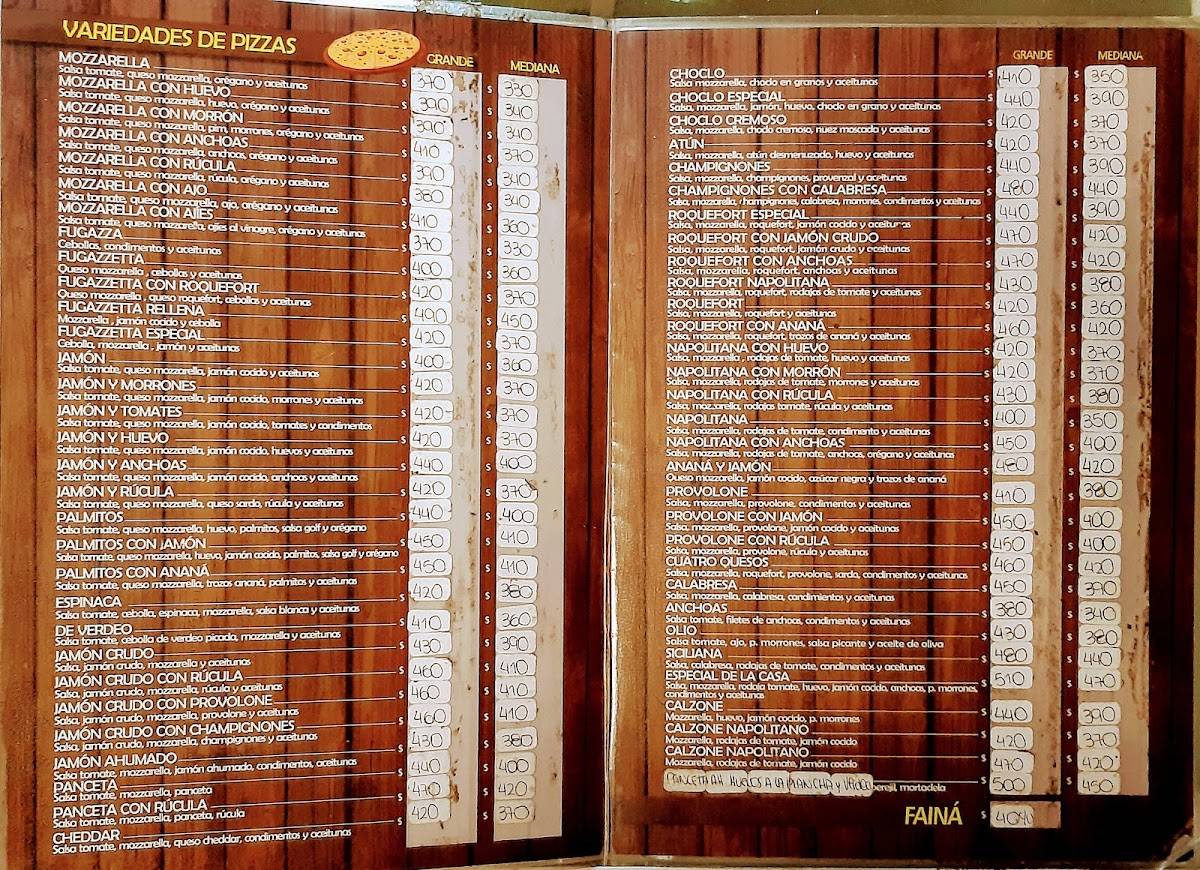 VARIEDADES DE PIZZAS
GRANDE MEDIANA
MOZZARELLA $ 370 $ 330
Salsa tomate, queso mozzarella, orégano y aceitunas
MOZZARELLA CON HUEVO $ 390 $ 340
Salsa tomate, queso mozzarella, huevo, orégano y aceitunas
MOZZARELLA CON MORRÓN $ 390 $ 340
Salsa tomate, queso mozzarella, pim, morrones, orégano y aceitunas
MOZZARELLA CON ANCHOAS $ 410 $ 370
Salsa tomate, queso mozzarella, anchoas, orégano y aceitunas
MOZZARELLA CON RÚCULA $ 390 $ 340
Salsa tomate, queso mozzarella, rúcula, orégano y aceitunas
MOZZARELLA CON AJO $ 380 $ 340
Salsa tomate, queso mozzarella, ajo, orégano y aceitunas
MOZZARELLA CON AJÍES $ 410 $ 360
Salsa tomate, queso mozzarella, ajíes al vinagre, orégano y aceitunas
FUGAZZA $ 370 $ 330
Cebollas, condimentos y aceitunas
FUGAZZETTA $ 400 $ 360
Queso mozzarella , cebollas y aceitunas
FUGAZZETTA CON ROQUEFORT $ 420 $ 370
Queso mozzarella , queso roquefort, cebollas y aceitunas
FUGAZZETTA RELLENA $ 490 $ 450
Mozzarella , jamón cocido y cebolla
FUGAZZETTA ESPECIAL $ 420 $ 370
Cebolla, mozzarella , jamón y aceitunas
JAMÓN $ 400 $ 360
Salsa tomate, queso mozzarella, jamón cocido y aceitunas
JAMÓN Y MORRONES $ 420 $ 370
Salsa tomate, queso mozzarella, jamón cocido, morrones y aceitunas
JAMÓN Y TOMATES $ 420 $ 370
Salsa tomate, queso mozzarella, jamón cocido, tomates y condimentos
JAMÓN Y HUEVO $ 420 $ 370
Salsa tomate, queso mozzarella, jamón cocido, huevos y aceitunas
JAMÓN Y ANCHOAS $ 440 $ 400
Salsa tomate, queso mozzarella, jamón cocido, anchoas y aceitunas
JAMÓN Y RÚCULA $ 420 $ 370
Salsa tomate, queso mozzarella, queso sardo, rúcula y aceitunas
PALMITOS $ 440 $ 400
Salsa tomate, queso mozzarella, huevo, palmitos, salsa golf y orégano
PALMITOS CON JAMÓN $ 450 $ 410
Salsa tomate, queso mozzarella, huevo, jamón cocido, palmitos, salsa golf y orégano
PALMITOS CON ANANÁ $ 450 $ 410
Salsa tomate, queso mozzarella, trozos ananá, palmitos y aceitunas
ESPINACA $ 420 $ 380
Salsa tomate, cebolla, espinaca, mozzarella, salsa blanca y aceitunas
DE VERDEO $ 410 $ 360
Salsa tomate, cebolla de verdeo picado, mozzarella y aceitunas
JAMÓN CRUDO $ 430 $ 390
Salsa, jamón crudo, mozzarella y aceitunas
JAMÓN CRUDO CON RÚCULA $ 460 $ 410
Salsa, jamón crudo, mozzarella, rúcula y aceitunas
JAMÓN CRUDO CON PROVOLONE $ 460 $ 410
Salsa, jamón crudo, mozzarella, provolone y aceitunas
JAMÓN CRUDO CON CHAMPIGNONES $ 460 $ 410
Salsa, jamón crudo, mozzarella, champignones y aceitunas
JAMÓN AHUMADO $ 430 $ 380
Salsa tomate, mozzarella, jamón ahumado, condimentos, aceitunas
PANCETA $ 440 $ 400
Salsa tomate, mozzarella, panceta
PANCETA CON RÚCULA $ 470 $ 420
Salsa tomate, mozzarella, panceta, rúcula
CHEDDAR $ 420 $ 370
Salsa tomate, mozzarella, queso cheddar, condimentos y aceitunas
GRANDE MEDIANA
CHOCLO $ 410 $ 350
Salsa mozzarella, choclo en granos y aceitunas
CHOCLO ESPECIAL $ 440 $ 390
Salsa, mozzarella, jamón, huevo, choclo en grano y aceitunas
CHOCLO CREMOSO $ 420 $ 370
Salsa, mozzarella, choclo cremoso, nuez moscada y aceitunas
ATÚN $ 420 $ 370
Salsa, mozzarella, atún desmenuzado, huevo y aceitunas
CHAMPIGNONES $ 440 $ 390
Salsa, mozzarella, champignones, provenzal y aceitunas
CHAMPIGNONES CON CALABRESA $ 480 $ 440
Salsa, mozzarella, champignones, calabresa, morrones, condimentos y aceitunas
ROQUEFORT ESPECIAL $ 440 $ 390
Salsa, mozzarella, roquefort, jamón cocido y aceitunas
ROQUEFORT CON JAMÓN CRUDO $ 470 $ 420
Salsa, mozzarella, roquefort, jamón crudo y aceitunas
ROQUEFORT CON ANCHOAS $ 470 $ 420
Salsa, mozzarella, roquefort, anchoas y aceitunas
ROQUEFORT NAPOLITANA $ 430 $ 380
Salsa, mozzarella, roquefort, rodajas de tomate y aceitunas
ROQUEFORT $ 420 $ 360
Salsa, mozzarella, roquefort y aceitunas
ROQUEFORT CON ANANÁ $ 460 $ 420
Salsa, mozzarella, roquefort, trozos de ananá y aceitunas
NAPOLITANA CON HUEVO $ 420 $ 370
Salsa, mozzarella , rodajas de tomate, huevo y aceitunas
NAPOLITANA CON MORRÓN $ 420 $ 370
Salsa, mozzarella, rodajas de tomate, morrones y aceitunas
NAPOLITANA CON RÚCULA $ 430 $ 380
Salsa, mozzarella, rodajas tomate, rúcula y aceitunas
NAPOLITANA $ 400 $ 350
Salsa, mozzarella, rodajas de tomate, condimento y aceitunas
NAPOLITANA CON ANCHOAS $ 450 $ 400
Salsa, mozzarella, rodajas de tomate, anchoas, orégano y aceitunas
ANANÁ Y JAMÓN $ 480 $ 420
Queso mozzarella, jamón cocido, azúcar negra y trozos de ananá
PROVOLONE $ 410 $ 380
Salsa, mozzarella, provolone, condimentos y aceitunas
PROVOLONE CON JAMÓN $ 450 $ 400
Salsa, mozzarella, provolone, jamón cocido y aceitunas
PROVOLONE CON RÚCULA $ 450 $ 400
Salsa, mozzarella, provolone, rúcula y aceitunas
CUATRO QUESOS $ 460 $ 420
Salsa, mozzarella, roquefort, provolone, sardo, condimentos y aceitunas
CALABRESA $ 450 $ 390
Salsa, mozzarella, calabresa, condimentos y aceitunas
ANCHOAS $ 380 $ 340
Salsa tomate, filetes de anchoas, condimentos y aceitunas
OLIO $ 430 $ 380
Salsa tomate, ajo, p. morrones, salsa picante y aceite de oliva
SICILIANA $ 480 $ 440
Salsa, calabresa, rodajas de tomate, condimentos y aceitunas
ESPECIAL DE LA CASA $ 510 $ 470
Salsa, mozzarella, rodaja tomate, huevo, jamón cocido, anchoas, p. morrones,
condimentos y aceitunas
CALZONE $ 440 $ 390
Mozzarella, huevo, jamón cocido, p. morrones
CALZONE NAPOLITANO $ 420 $ 370
Mozzarella, rodajas de tomate, jamón cocido
CALZONE NAPOLITANO $ 470 $ 420
Mozzarella, rodajas de tomate, jamón cocido
PANCETA AH. HUEVOS A LA PLANCHA Y perejil, mortadela $ 500 $ 450
FAINÁ $ 40